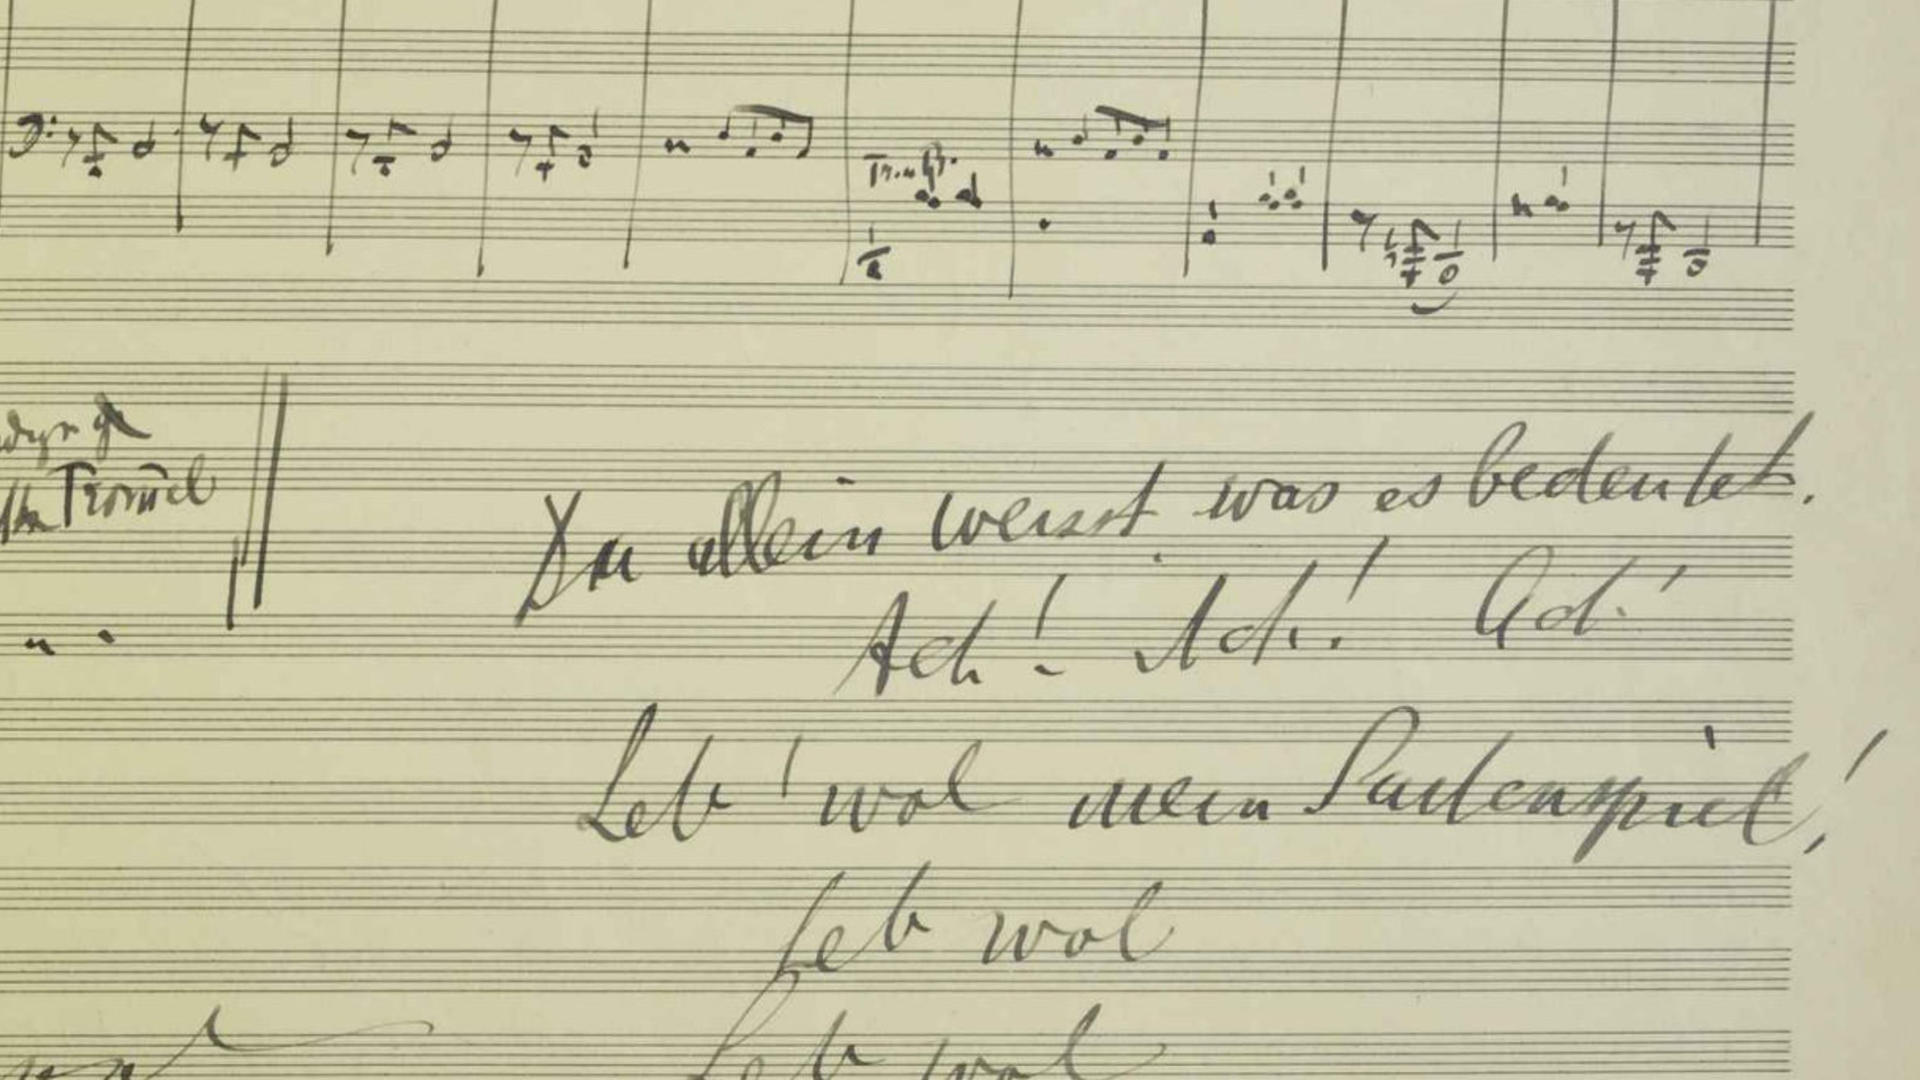 Trom̄el
Du allein weisst was es bedeutet.
Ach! Ach! Ach!
Leb' wol mein Saitenspiel!
Leb wol
Leb wol